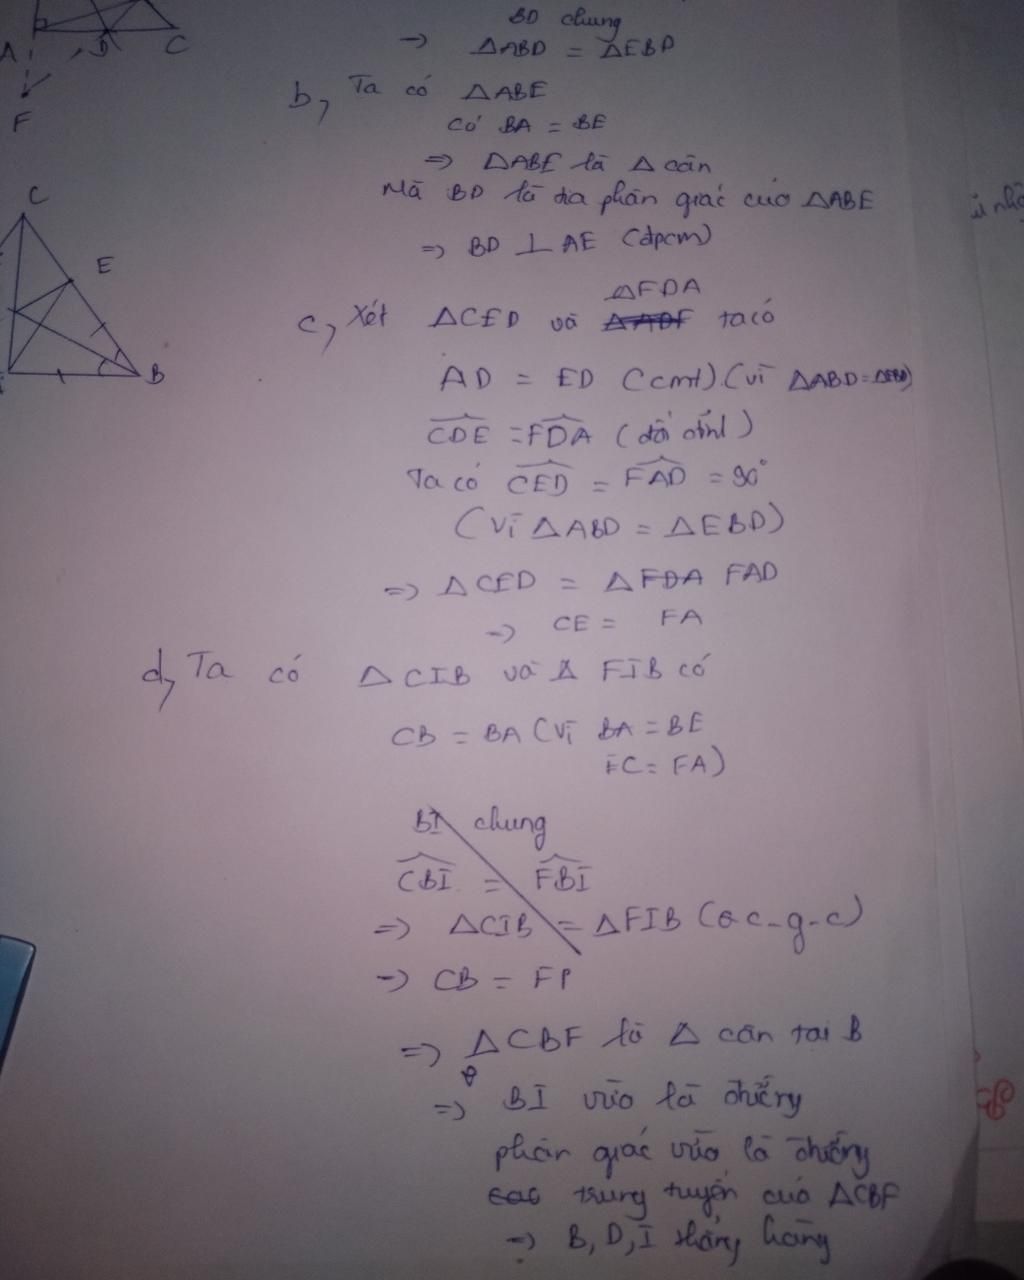 BD chung
A D C
→ ΔABD = ΔEBD
F
b, Ta có ΔABE
có BA = BE
=> ΔABE là Δ cân
Mà BD là tia phân giác của ΔABE
=> BD ⊥ AE (đpcm)
C
E
B
ΔFDA
c, Xét ΔCED và ta có
AD = ED (cmt) (vì ΔABD = ΔEBD)
CDE = FDA (đối đỉnh)
Ta có CED = FAD = 90°
(Vì ΔABD = ΔEBD)
=> ΔCED = ΔFDA FAD
=> CE = FA
d, Ta có ΔCIB và Δ FIB có
CB = BA (Vì BA = BE
EC = FA)
BI chung
CBI = FBI
=> ΔCIB = ΔFIB (c-g-c)
=> CB =
=> ΔCBF là Δ cân tại B
=> BI vừa là đường
phân giác vừa là đường
cao trung tuyến của ΔCBF
=> B, D, I thẳng hàng